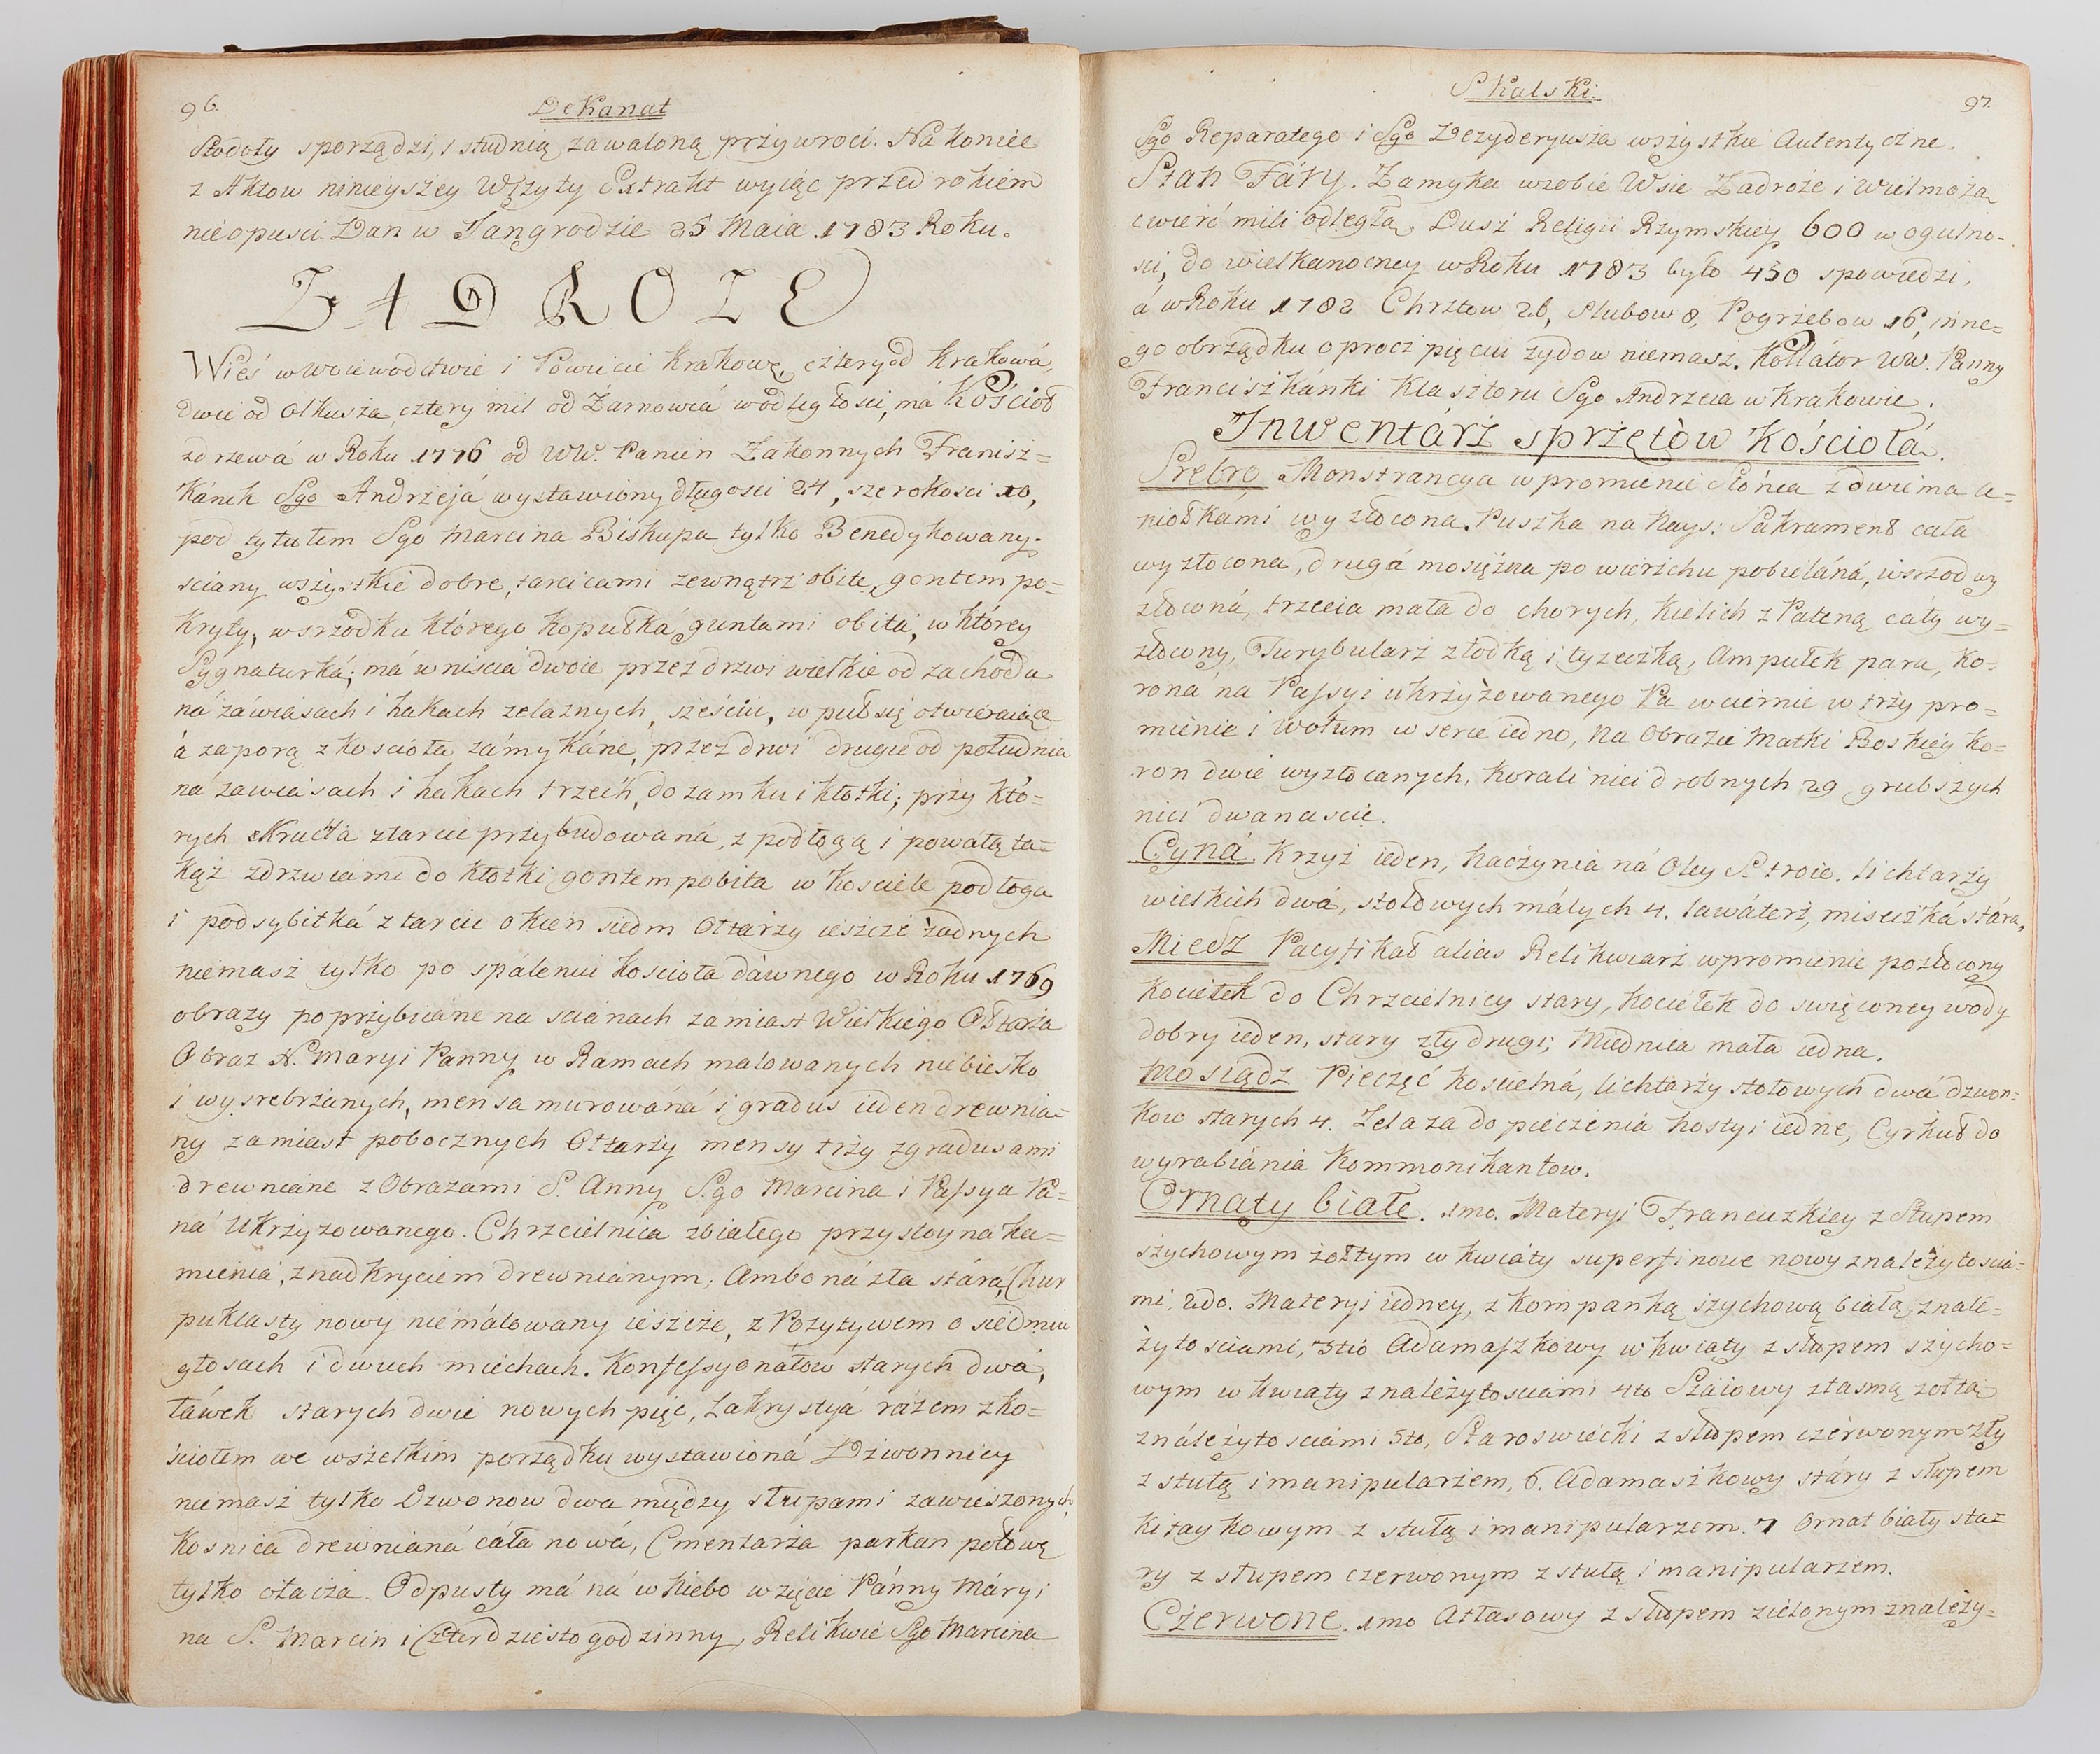 96.
DeKanat
Stodoły sporządzi, i studnią zawaloną przywroci. Na koniec
z Aktow ninieyszey Wizyty Extrakt wyiąc przed rokiem
nieopusci. Dan w Jangrodzie 25 Maia 1783 Roku.
ZADROZE
Wieś w Woiewodztwie i Powiecie Krakowę, cztery od Krakowá,
dwie od Olkusza, cztery mil od Żarnowcá wodległości, má Kościoł
zdrzewá w Roku 1776 od WW. Panien Zakonnych Franisz=
kánek Sgo Andrzejá wystawiony długosci 24, szerokosci 10,
pod tytułem Sgo Marcina Biskupa tylko Benedykowany.
sciany wszystkie dobre, tarcicami zewnątrz obite, gontem po=
kryty, wsrzodku którego kopułká guntami obitá, w którey
Sygnaturká; má wniścia dwoie przez drzwi wielkie od zachodu
ná záwiasach i hakach zelaznych, sześciu, w puł się otwieraiące
á zaporą z kosciola zámykáne, przez drwi drugie od południa
ná zawiasach i hakach trzech, do zamku i kłotki; przy któ=
rych Kruchta ztarcic przybudowaná, z podłogą i powałą ta=
kąż zdrzwiami do kłotki gontem pobita w kosciele podłoga
i podsybitká z tarcic okien siedm Ołtarzy ieszcze żadnych
niemasz tylko po spáleniu kosciola dáwnego w Roku 1769
obrazy poprzybiáne na scianach zamiast Wielkiego Ołtarza
Obraz N. Maryi Panny w Ramach malowanych niebiesko
i wysrebrzanych, mensa murowáná i gradus ieden drewnia=
ny zamiast pobocznych Ołtarzy mensy trzy zgradusami
drewniane z Obrazami S. Anny Sgo Marcina i Passya Pa=
ná Ukrzyzowanego. Chrzcielnica zbiałego przystoyna ka=
mieniá, znadkryciem drewnianym; Amboná zła stárá, Chur
puklasty nowy niemálowany ieszcze, z Pozytywem o siedmiu
głosach i dwuch miechach. Konfessyonałow starych dwá,
łáwek starych dwie nowych pięc, Zakrystyá rázem zko=
ściołem we wszelkim porządku wystawioná Dzwonnicy
niemasz tylko Dzwonow dwa między słupami zawieszonych,
Kosnica drewnianá cáła nowá, Cmentarza parkan połowę
tylko otacza. Odpusty má ná w Niebo wzięcie Pánny Máryi
na S. Marcin i Czterdziestogodzinny, Relikwie Sgo Marcina
Skalski.
97.
Sgo Reparatego i Sgo Dezyderyusza wszystkie Autentyczne.
Stan Fáry. Zamyka wsobie Wsie Zadroże i Wielmoża
cwierć mili odległą, Dusz Religii Rzymskiey 600 w ogulno=
sci, do wielkanocney w Roku 1783 było 450 spowiedzi,
á w Roku 1782 Chrztow 26, Slubow 8, Pogrzebow 16, inne=
go obrządku oprocz pięciu zydow niemasz. Kollátor WW. Panny
Franciszkánki Klasztoru Sgo Andrzeia w Krakowie.
Inwentárz sprzętów Kościołá.
Srebro Monstrancya w promienie słońca z dwiema a=
niołkami wyzłocona. Puszka na Nays: Sakrament cała
wyzłocona, drugá mosiężna po wierzchu pobieláná, wsrzod wy
złoconá, trzecia mała do chorych, Kielich z Pateną cały wy=
złocony, Turybularz złodką i łyzeczką, Ampułek para, Ko=
roná na Passyi ukrzyżowanego Pa w ciernie w trzy pro=
mienie i wotum w serce iedno, Na Obrazie Matki Boskiey Ko=
ron dwie wyzłocanych, korali nici drobnych 29 grubszych
nici dwanascie.
Cyná. Krzyż ieden, naczynia ná Oley S. troie. lichtarzy
wielkich dwá, stołowych máłych 4. lawáterz, miseczká stára,
Miedz Pacyfikał alias Relikwiarz wpromienie pozłocony
Kociełek do Chrzcielnicy stary, kociełek do swięconey wody
dobry ieden, stary zły drugi; Miednica mała iedna.
Mosiądz Pieczęć koscielná, lichtarzy stołowych dwá dzwon=
kow starych 4. Zelaza do pieczenia hostyi iedne, Cyrkuł do
wyrabiánia Kommonikantow.
Ornaty białe. 1mo. Materyi Francuzkiey z słupem
szychowym żołtym w kwiáty superfinowe nowy znależytoscia=
mi, 2do. Materyi iedney, z kompanką szychową białą, znale=
żytosciami, 3tio Adamaszkowy w kwiaty z słupem szycho=
wym w kwiaty z należytosciámi 4to Szaiowy ztasmą zołtą
ználeżytosciámi 5to, Staroswiecki z słupem czérwonym zły
z stułą i manipularzem, 6. Adamaszkowy stáry z słupem
kitaykowym z stułą i manipularzem. 7 Ornat biały sta=
ry z słupem czerwonym z stułą i manipularzem.
Czerwone. 1mo Atłasowy z słupem zielonym znależy=